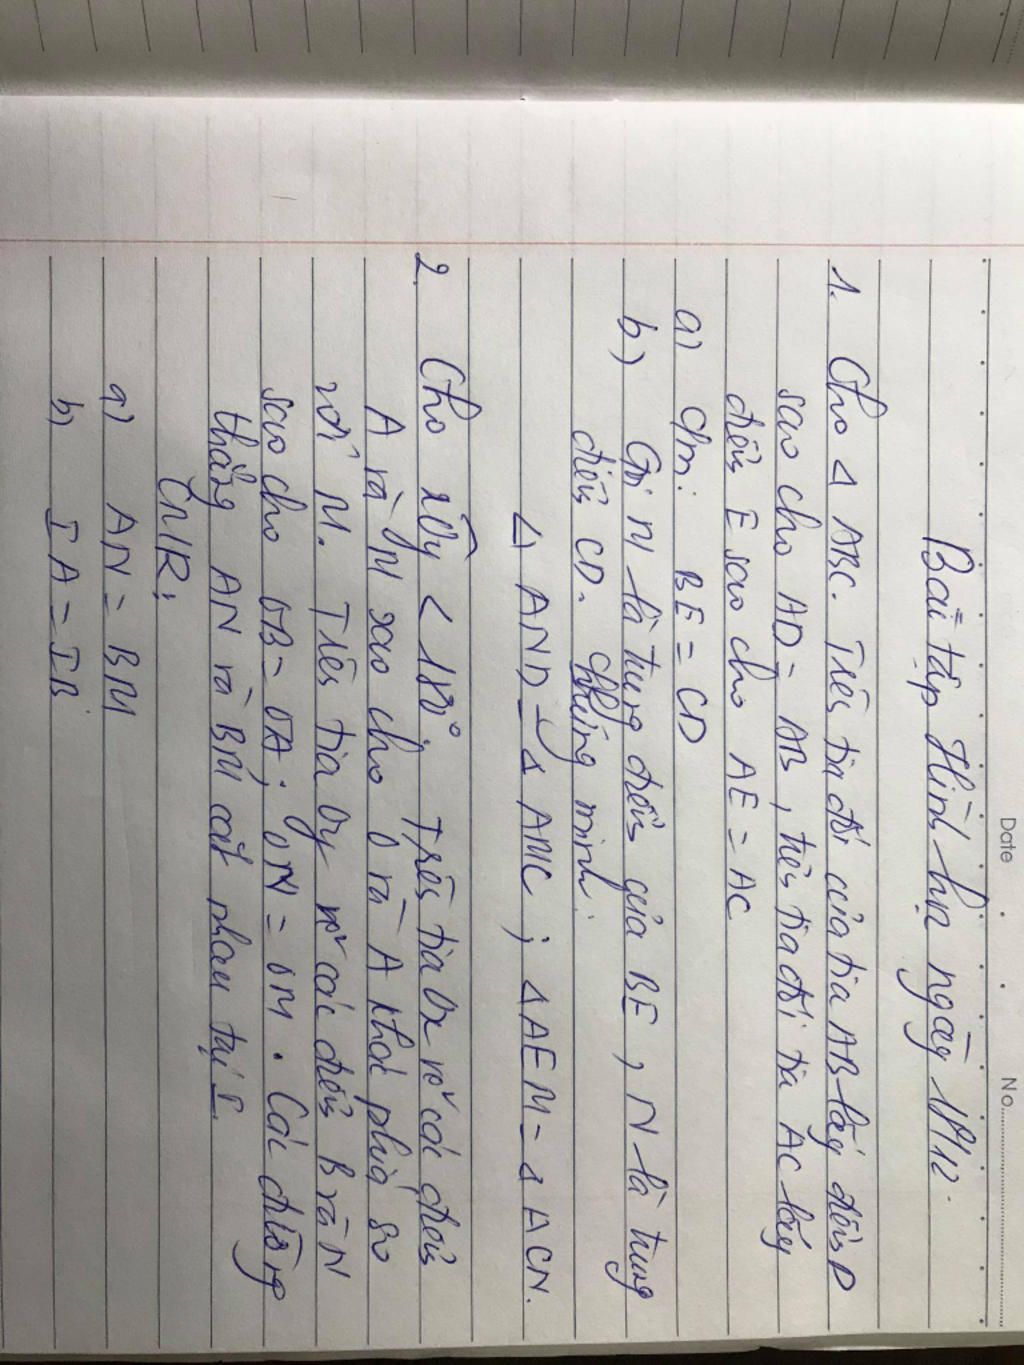 Date
No.
Bài tập Hình học ngày 18/12.
1. Cho Δ ABC. Trên tia đối của tia AB lấy điểm D
sao cho AD = AB, trên tia đối tia AC lấy
điểm E sao cho AE = AC
a) Cm: BE = CD
b) Gọi M là trung điểm của BE, N là trung
điểm CD. Chứng minh:
Δ AND = Δ AMC ; Δ AEM = Δ ACN.
2. Cho xOy < 180°. Trên tia Ox vẽ các điểm
A và M sao cho O và A khác phía so
với M. Trên tia Oy vẽ các điểm B và N
sao cho OB = OA ; ON = OM. Các đường
thẳng AN và BM cắt nhau tại I.
CMR:
a) AN = BM
b) IA = IB